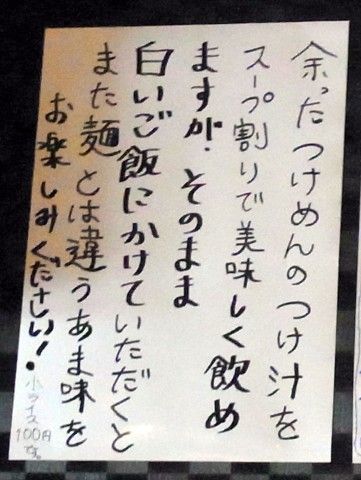 余ったつけめんのつけ汁を
スープ割りで美味しく飲め
ますが、そのまま
白いご飯にかけていただくと
また麺とは違うあま味を
お楽しみください!
小ライス
100円
です。